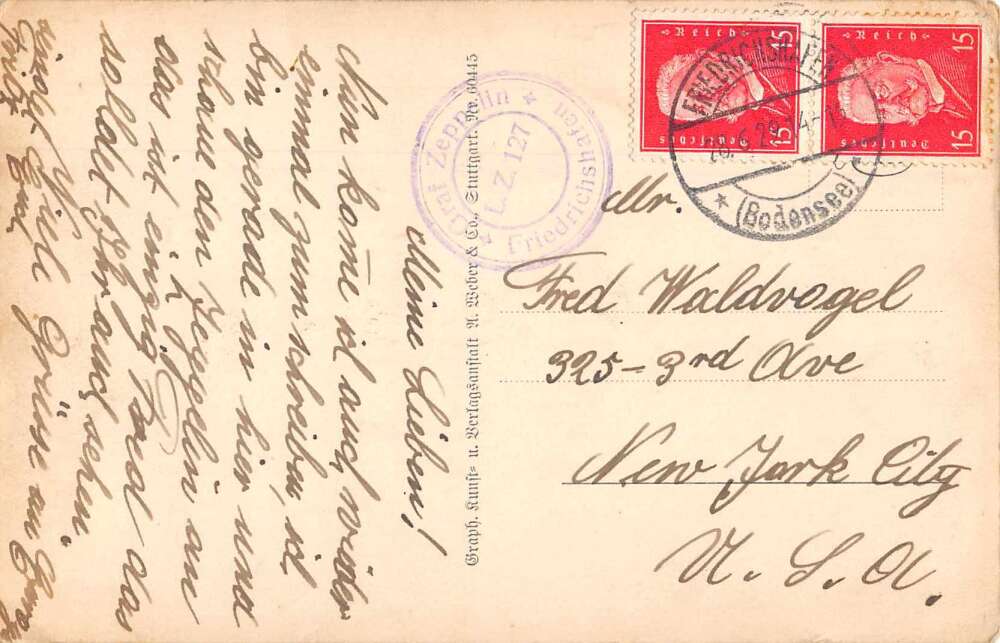 Meine Lieben!
Nun kome ich auch wieder
einmal zum schreiben, ich
bin gerade in hier und
schaue den Zeppelin an
das ist einzig Fred das
solltet Ihr auch sehen.
Viele Grüsse an
Graph. Kunst- u. Verlagsanstalt A. Weber & Co., Stuttgart. No. 60445
Graf Zeppelin * Friedrichshafen *
L.Z. 127
Deutsches Reich 15 15
Deutsches Reich 15 15
FRIEDRICHSHAFEN
(Bodensee)
Mr.
Fred Waldvogel
325-3rd Ave
New York City
U. S. A.